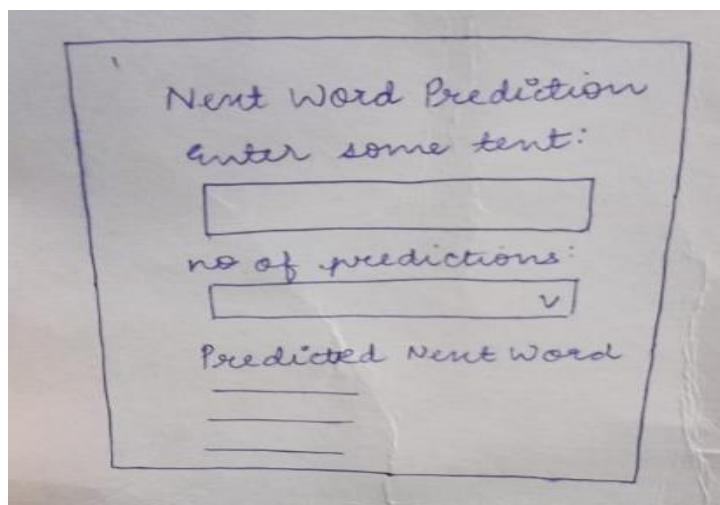 Next Word Prediction
Enter some text:
no of predictions:
Predicted Next Word